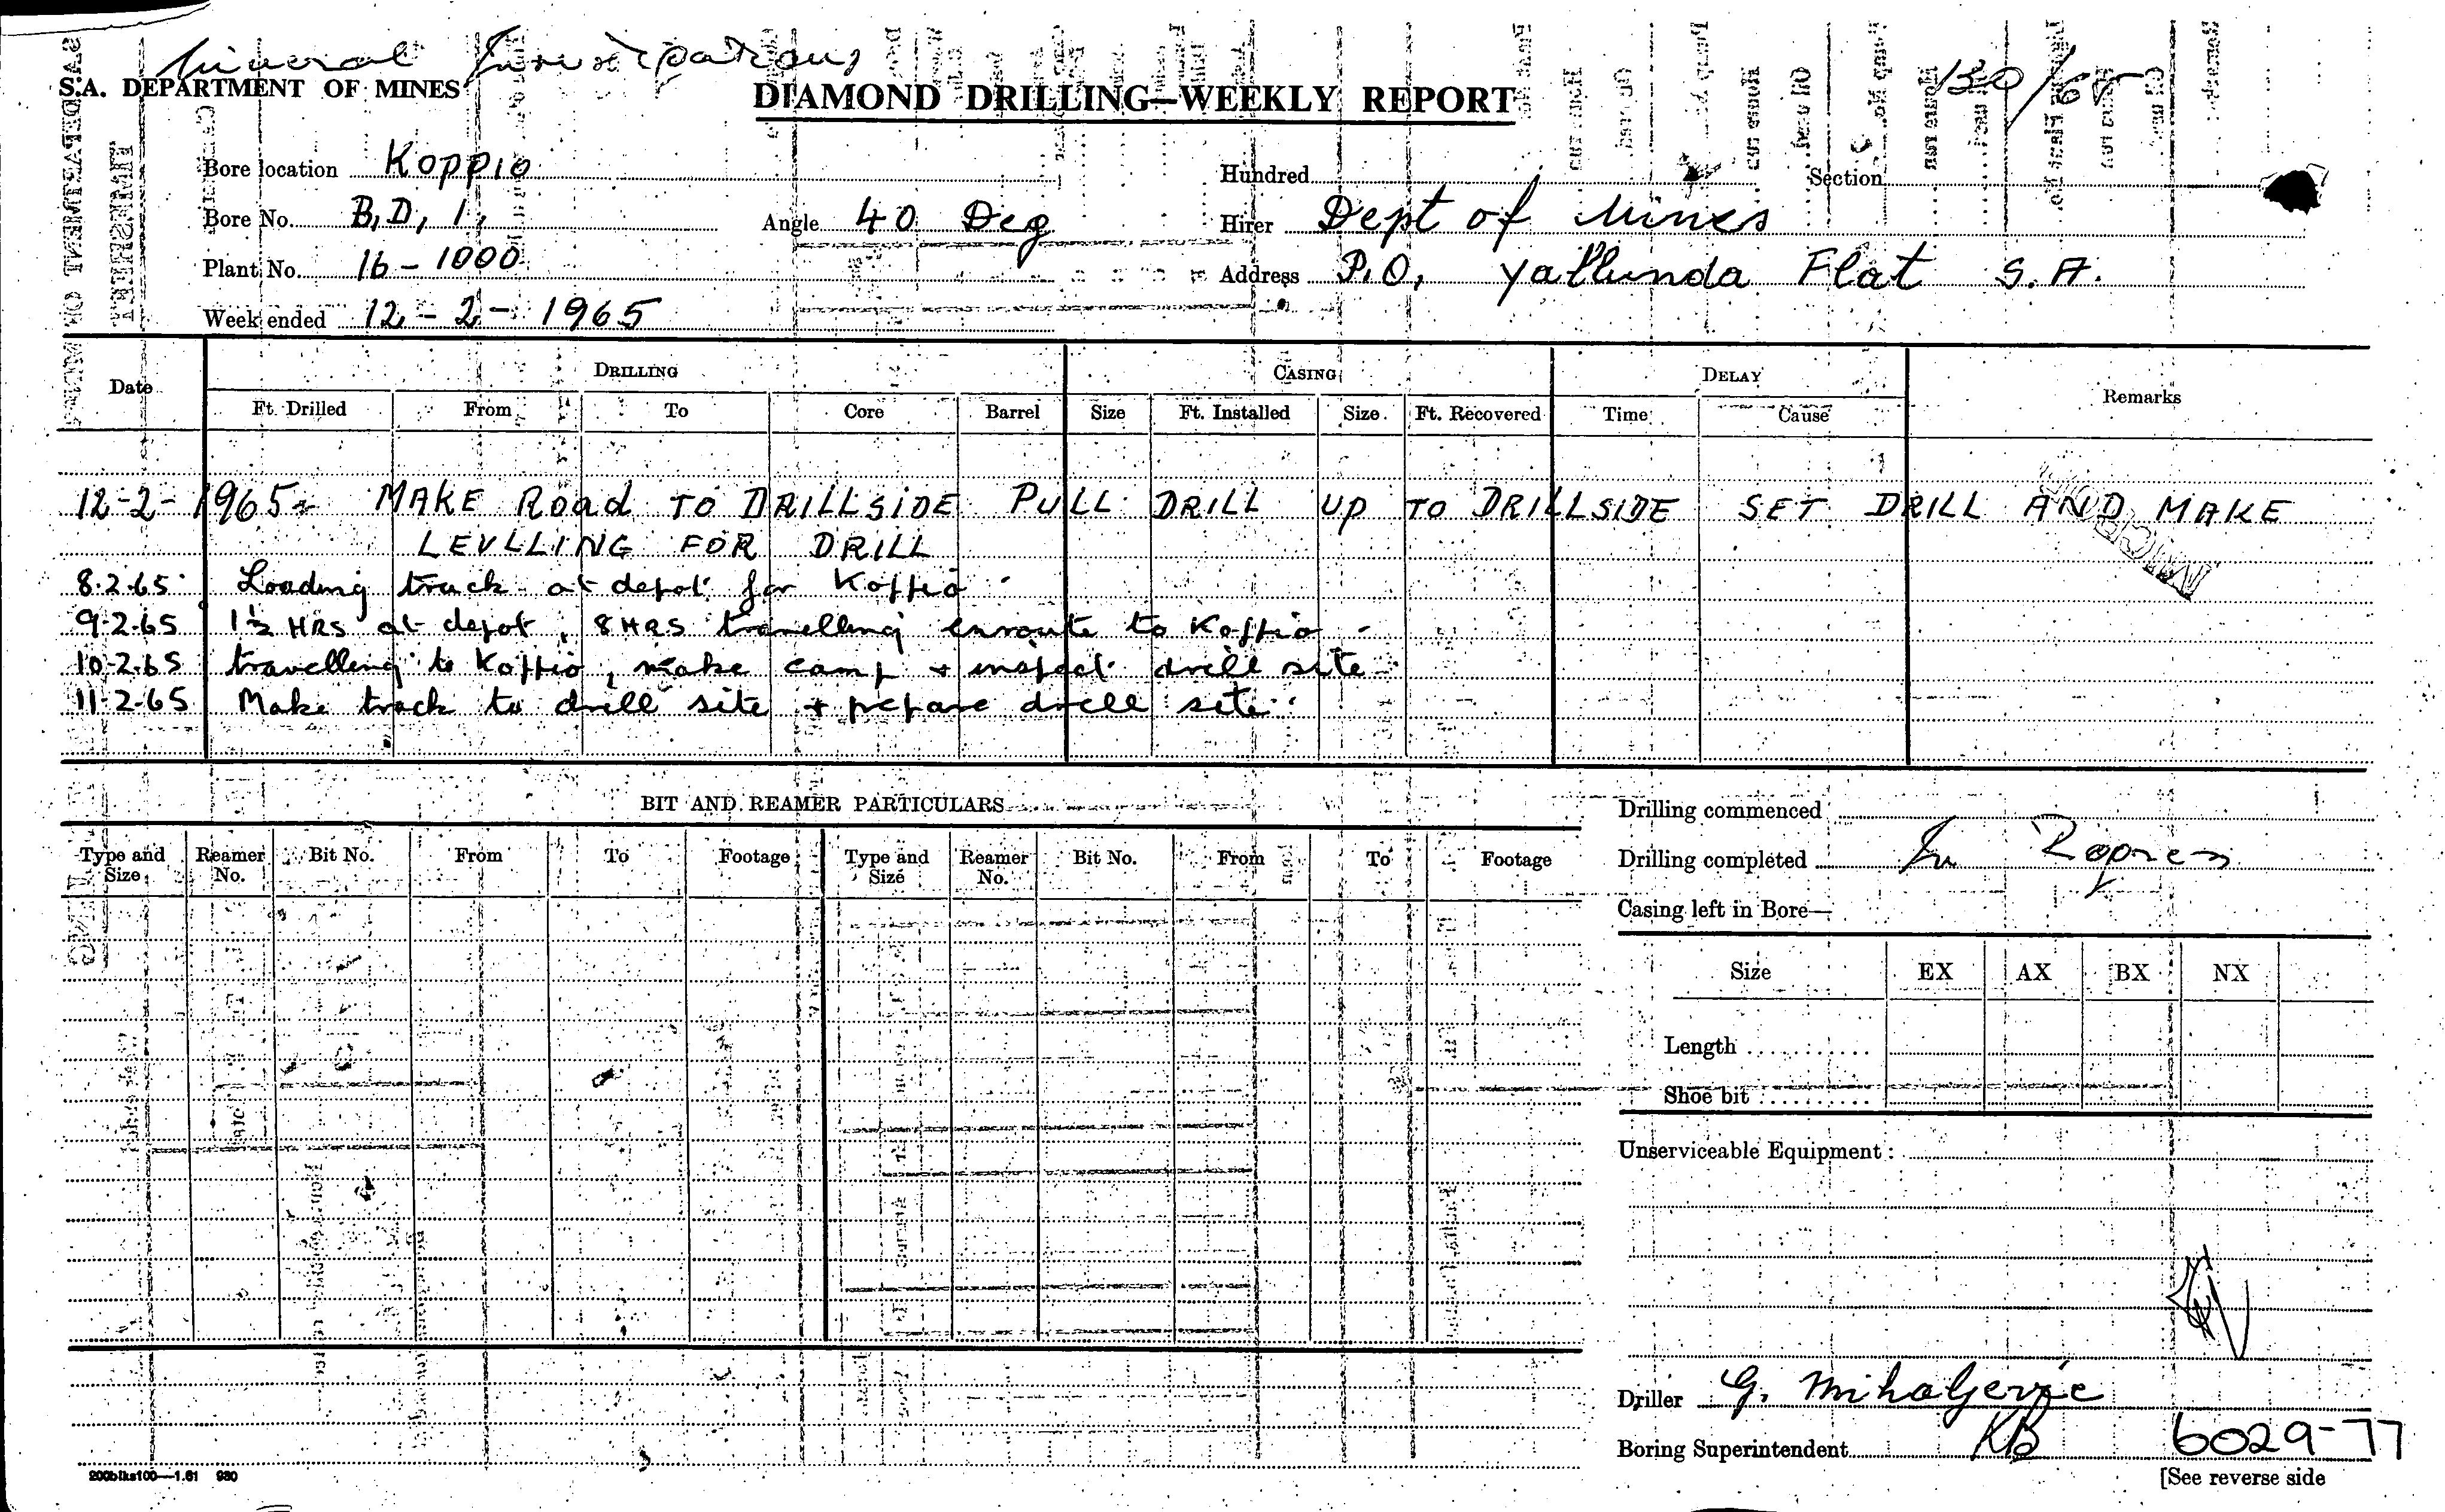 Mineral Investigations
S.A. DEPARTMENT OF MINES
DIAMOND DRILLING—WEEKLY REPORT
130/65
Bore location Koppio
Hundred
Section
Bore No. B,D, 1,
Angle 40 Deg
Hirer Dept of Mines
Plant No. 16-1000
Address P.O, Yallunda Flat S.A.
Week ended 12-2-1965
Date
DRILLING
CASING
DELAY
Remarks
Ft. Drilled From To Core Barrel Size Ft. Installed Size Ft. Recovered Time Cause
12-2-1965 MAKE Road TO DRILLSIDE PULL DRILL UP TO DRILLSIDE SET DRILL AND MAKE
LEVLLING FOR DRILL
8.2.65 Loading truck at depot for Koppio
9.2.65 1½ HRS at depot, 8 HRS travelling enroute to Koppio
10.2.65 travelling to Koppio, make camp + inspect drill site
11.2.65 Make track to drill site + prepare drill site
BIT AND REAMER PARTICULARS
Type and Size Reamer No. Bit No. From To Footage Type and Size Reamer No. Bit No. From To Footage
Drilling commenced
Drilling completed In Progress
Casing left in Bore—
Size EX AX BX NX
Length
Shoe bit
Unserviceable Equipment :
Driller G. Mihaljevic
Boring Superintendent KB
6029-77
200blks100—1.61 930
[See reverse side